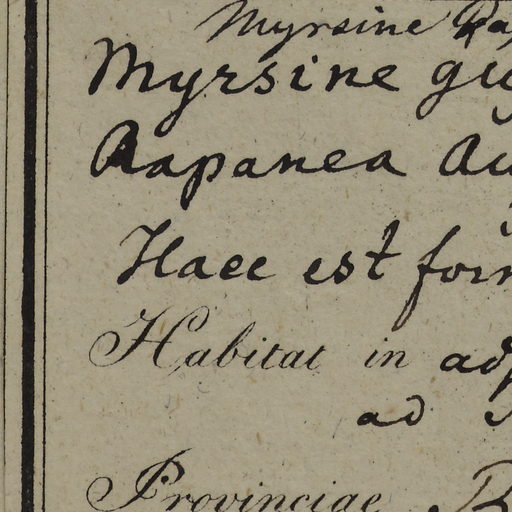 Myrsine Ra
Myrsine gu
Rapanea Au
Haec est for
Habitat in ad
ad
Provinciae B